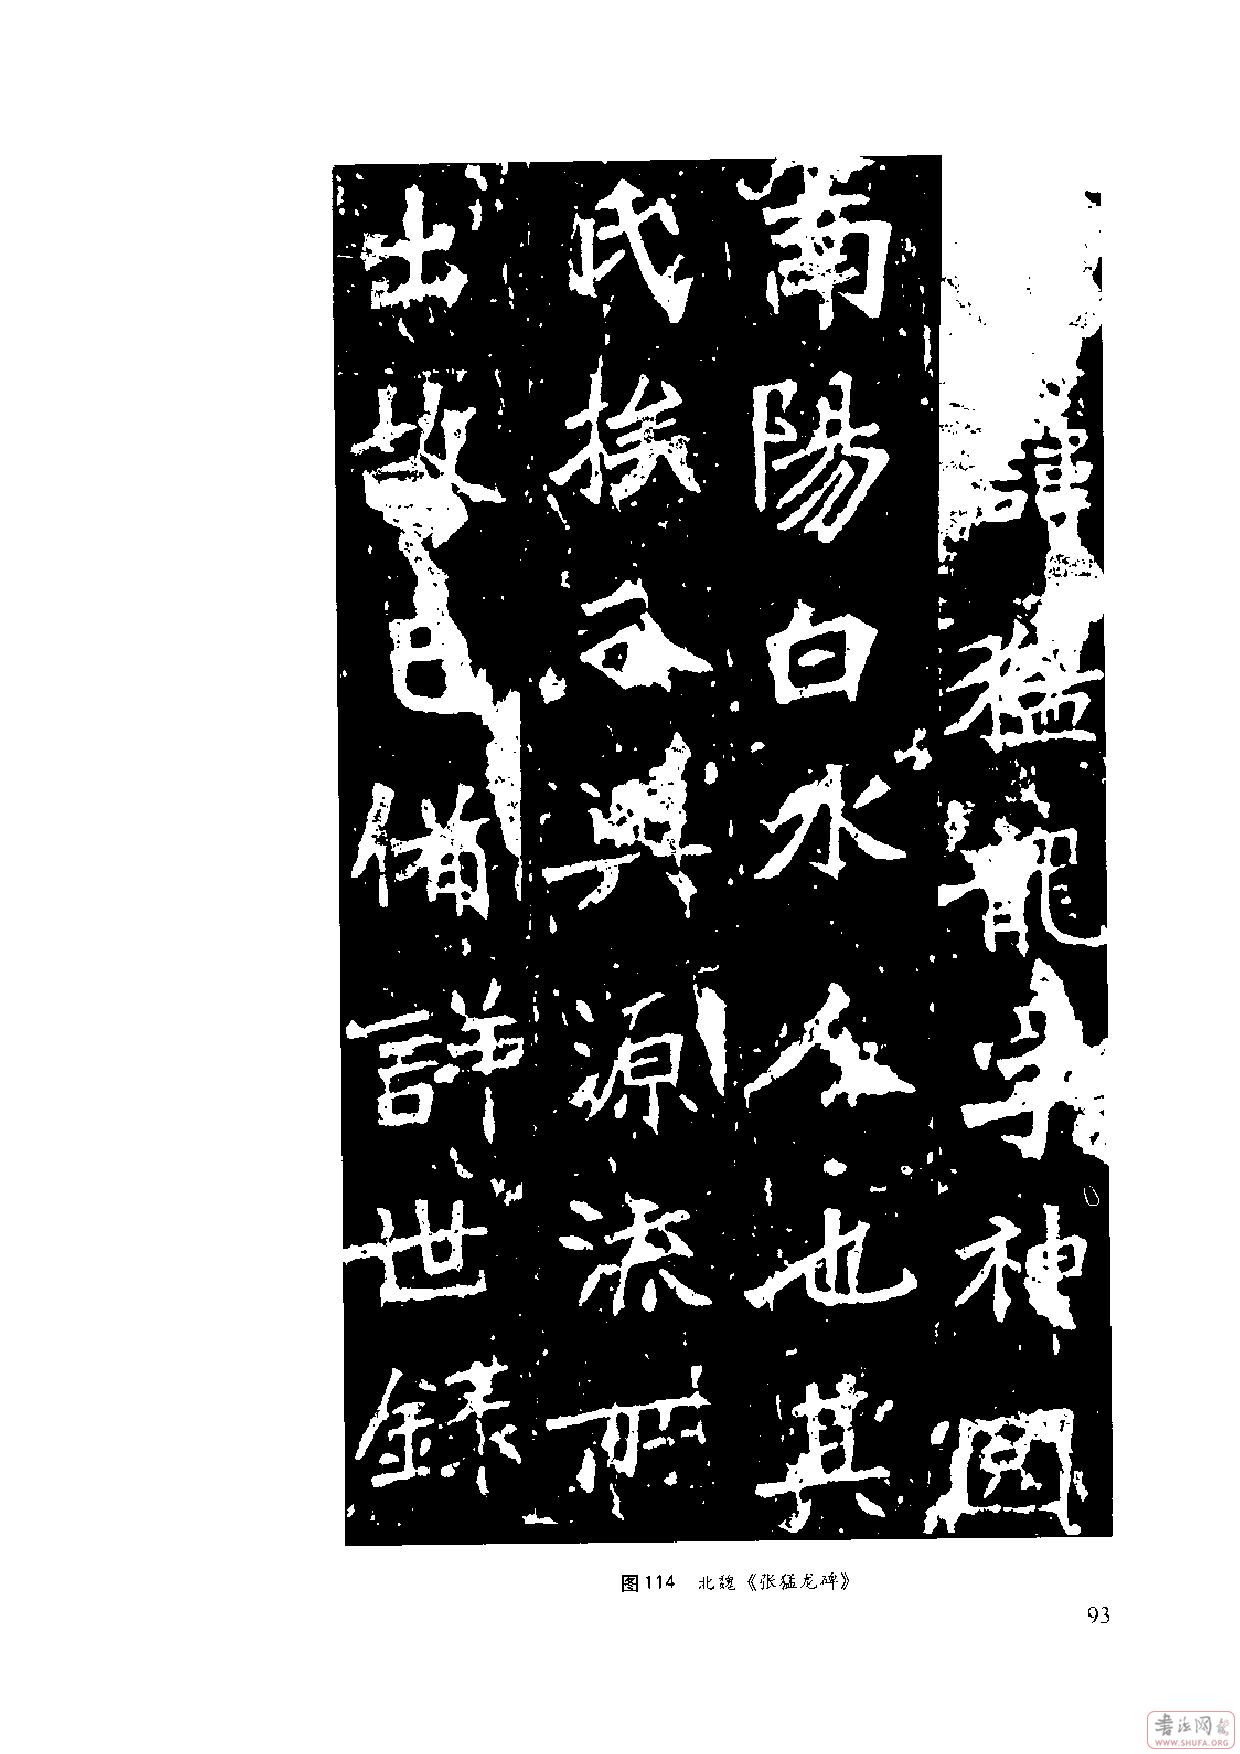 諱猛龍字神囧
南陽白水人也其
氏族分興源流所
出故已備詳世錄
图114 北魏《张猛龙碑》
93
书法网
WWW.SHUFA.ORG